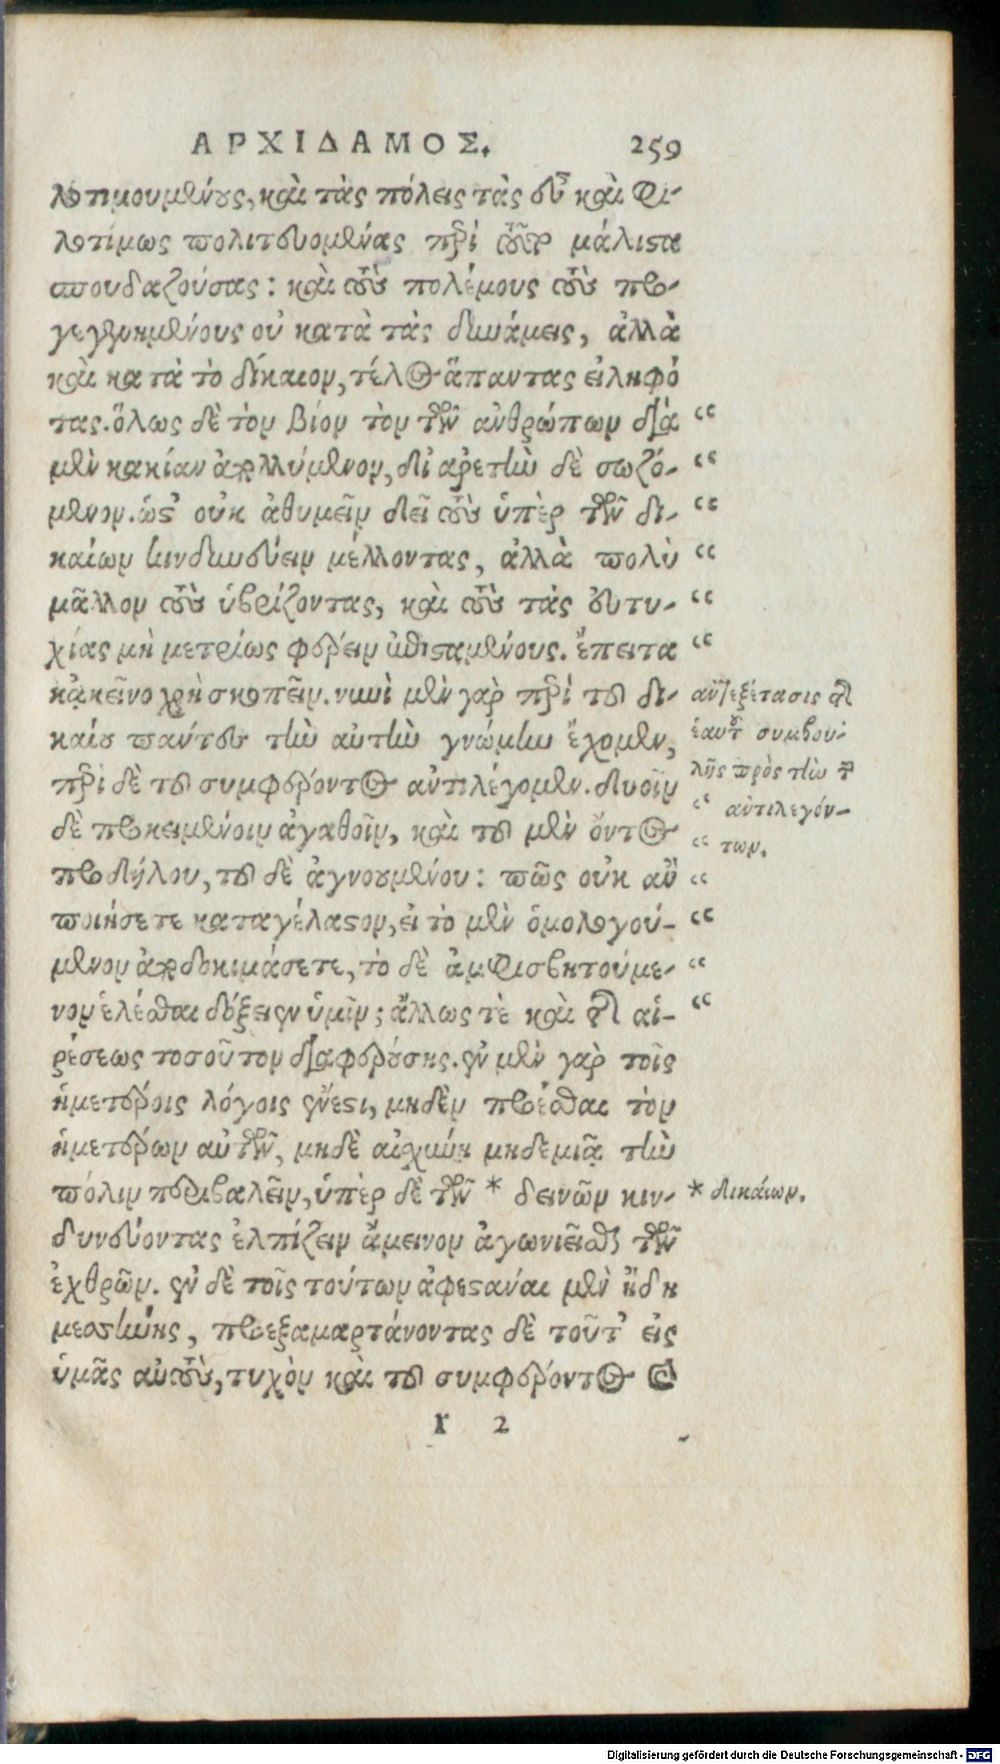 ΑΡΧΙΔΑΜΟΣ. 259
λοτιμουμένους, καὶ τὰς πόλεις τὰς εὖ καὶ φι-
λοτίμως πολιτευομένας περὶ τούτων μάλιστα
σπουδαζούσας: καὶ τοὺς πολέμους τοὺς προ-
γεγενημένους οὐ κατὰ τὰς δυνάμεις, ἀλλὰ
καὶ κατὰ τὸ δίκαιον, τέλος ἅπαντας εἰληφό
τας. ὅλως δὲ τὸν βίον τὸν τῶν ἀνθρώπων διὰ “
μὲν κακίαν ἀπολλύμενον, δι' ἀρετὴν δὲ σωζό- “
μενον. ὥστ' οὐκ ἀθυμεῖν δεῖ τοὺς ὑπὲρ τῶν δι- “
καίων κινδυνεύειν μέλλοντας, ἀλλὰ πολὺ “
μᾶλλον τοὺς ὑβρίζοντας, καὶ τοὺς τὰς εὐτυ- “
χίας μὴ μετρίως φέρειν ἐπισταμένους. ἔπειτα “
κἀκεῖνο χρὴ σκοπεῖν. νυνὶ μὲν γὰρ περὶ τοῦ δι-
καίου πάντες τὴν αὐτὴν γνώμην ἔχομεν,
περὶ δὲ τοῦ συμφέροντος ἀντιλέγομεν. δυοῖν
δὲ προκειμένοιν ἀγαθοῖν, καὶ τοῦ μὲν ὄντος
προδήλου, τοῦ δὲ ἀγνοουμένου: πῶς οὐκ ἂν “
ποιήσετε καταγέλαστον, εἰ τὸ μὲν ὁμολογού- “
μενον ἀποδοκιμάσετε, τὸ δὲ ἀμφισβητούμε- “
νον ἑλέσθαι δόξειεν ὑμῖν; ἄλλως τὲ καὶ τῆς αἱ- “
ρέσεως τοσοῦτον διαφερούσης. ἐν μὲν γὰρ τοῖς
ἡμετέροις λόγοις ἔνεστι, μηδὲν προέσθαι τὸν
ἡμετέρων αὐτῶν, μηδὲ αἰσχύνῃ μηδεμιᾷ τὴν
πόλιν περιβαλεῖν, ὑπὲρ δὲ τῶν * δεινῶν κιν-
δυνεύοντας ἐλπίζειν ἄμεινον ἀγωνιεῖσθαι τῶν
ἐχθρῶν. ἐν δὲ τοῖς τούτων ἀφεστάναι μὲν ἤδη
μεσσήνης, προεξαμαρτάνοντας δὲ τοῦτ' εἰς
ὑμᾶς αὐτοὺς, τυχὸν καὶ τοῦ συμφέροντος καὶ
Y 2
ἀντεξέτασις τῆς
ἑαυτοῦ συμβου-
λῆς πρὸς τὴν τῶν
“ ἀντιλεγόν-
“ των.
* δικαίων.
Digitalisierung gefördert durch die Deutsche Forschungsgemeinschaft - DFG